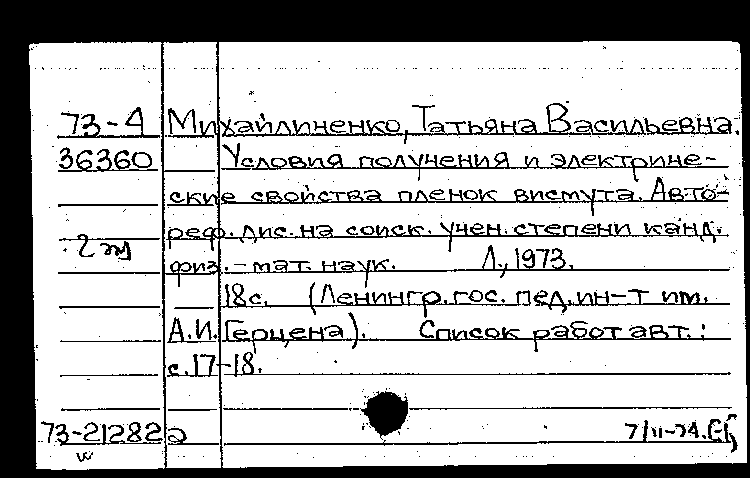 73-4 Михайличенко, Татьяна Васильевна.
36360 Условия получения и электриче-
ские свойства пленок висмута. Авто-
реф. дис. на соиск. учен. степени канд.
физ.-мат. наук. Л., 1973.
18с. (Ленингр. гос. пед. ин-т им.
А.И. Герцена). Список работ авт.:
с. 17-18.
73-21282